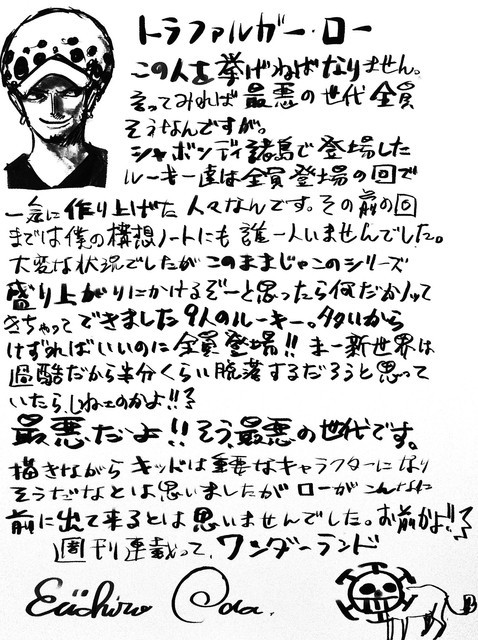 トラファルガー・ロー
この人を挙げねばなりません。
そってみれば最悪の世代全員
そうなんですが。
シャボンディ諸島で登場した
ルーキー達は全員登場の回で
一気に作り上げた人々なんです。その前の回
までは僕の構想ノートにも誰一人いませんでした。
大変な状況でしたがこのままじゃこのシリーズ
盛り上がりにかけるぞーと思ったら何だかノッて
きちゃってできました9人のルーキー。多いから
けずればいいのに全員登場!! まー新世界は
過酷だから半分くらい脱落するだろうと思って
いたら、しねェのかよ!!う
最悪だよ!! そう、最悪の世代です。
描きながらキッドは重要なキャラクターになり
そうだなとは思いましたがローがこんなに
前に出て来るとは思いませんでした。お前かよ!!う
週刊連載って、ワンダーランド
Eiichiro Oda.